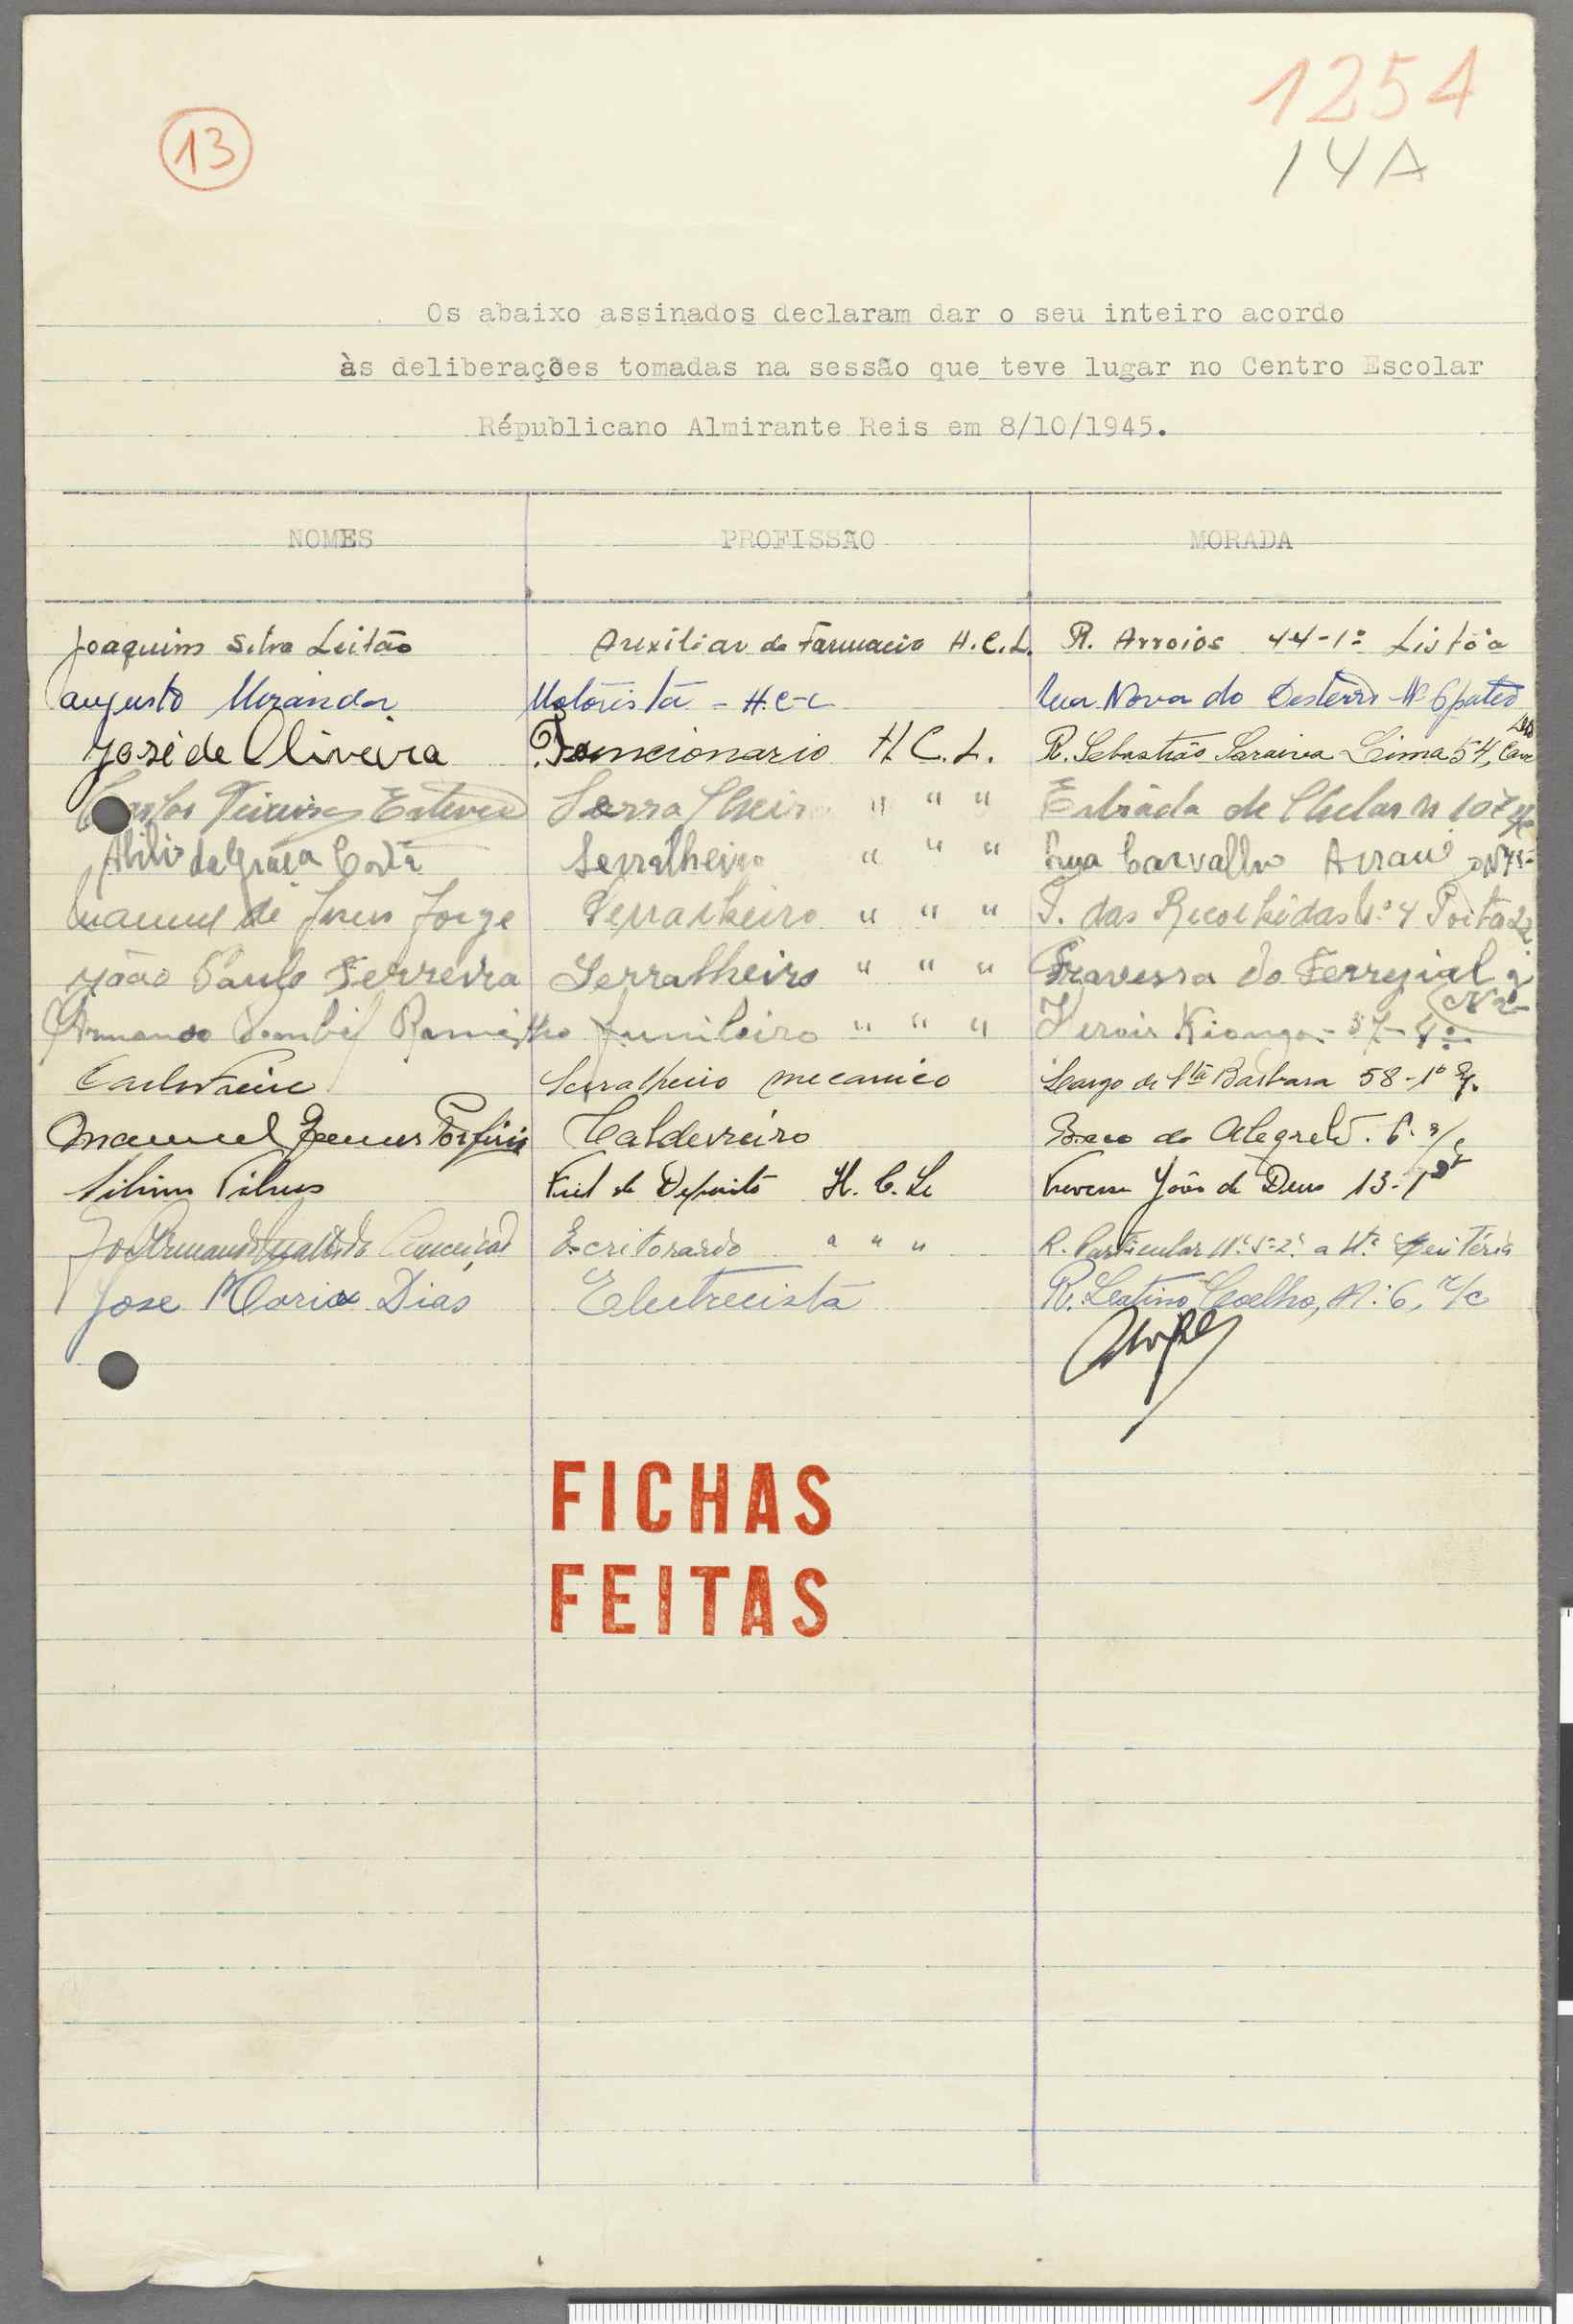 1254
13
14A
Os abaixo assinados declaram dar o seu inteiro acordo
às deliberações tomadas na sessão que teve lugar no Centro Escolar
Républicano Almirante Reis em 8/10/1945.
NOMES PROFISSÃO MORADA
Joaquim Silva Leitão Auxiliar de Farmacia H.C.L. R. Arroios 44-1º Lisbôa
Augusto Miranda Motorista - H.C-L Rua Nova do Desterro Nº 6 pateo
José de Oliveira Funcionario H.C.L. R. Sebastião Saraiva Lima 54, Cave
Carlos Teixeira Esteves Serralheiro " " " Estrada de Chelas N 107
Abilio da Graça Costa Serralheiro " " " Rua Carvalho Araui
Manuel de Jesus Jorge Serralheiro " " " T. das Recolhidas Nº 4 Porta 22
João Paulo Ferreira Serralheiro " " " Travessa do Ferregial
Nº 2
Armando Ramilho funileiro " " " Herois Kionga - 37-4º
Carlos Freire Serralheiro mecanico Largo de Stª Barbara 58-1º
Manuel Porfirio Caldeireiro Beco do Alegrete. 6. r/c
Fiel de Deposito H.C.L. Travessa João de Deus 13-1º
Conceição Escritorario " " " R. Particular
Jose Maria Dias Electrecista R. Latino Coelho, Nº 6, r/c
FICHAS
FEITAS